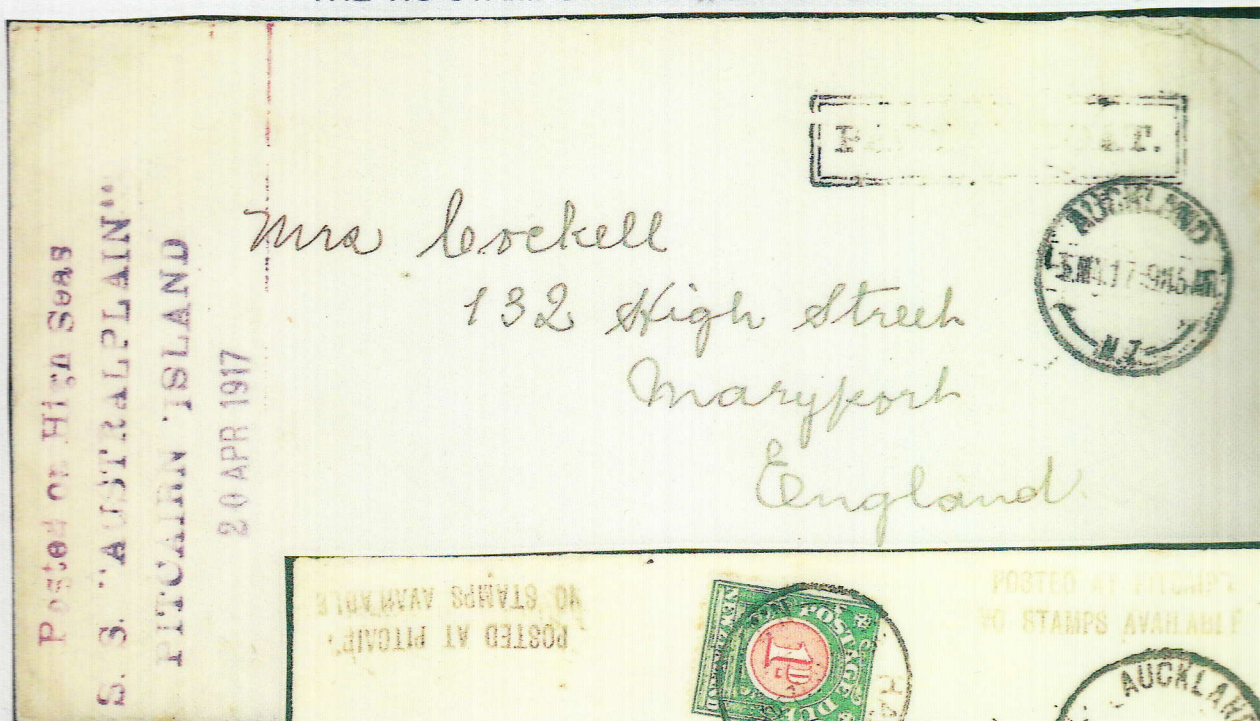 Posted on High Seas
S. S. "AUSTRALPLAIN"
PITCAIRN ISLAND
20 APR 1917
Mrs Cockell
132 High Street
Maryport
England
AUCKLAND
N.Z.
POSTED AT PITCAIRN
NO STAMPS AVAILABLE
POSTAGE DUE
1D
POSTED AT PITCAIRN
NO STAMPS AVAILABLE
AUCKLAN